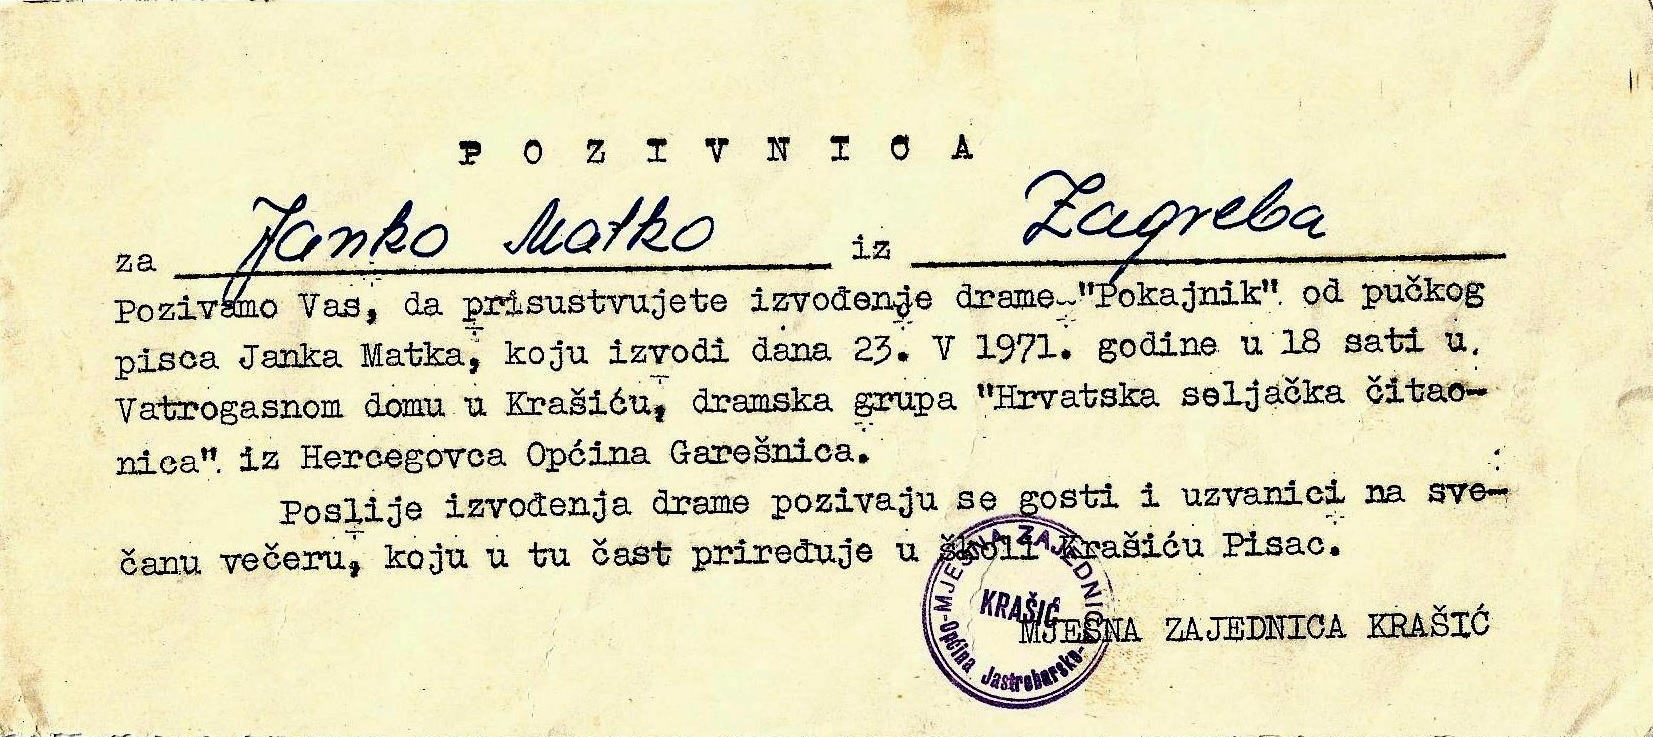 P O Z I V N I C A
za Janko Matko iz Zagreba
Pozivamo Vas, da prisustvujete izvođenje drame "Pokajnik" od pučkog
pisca Janka Matka, koju izvodi dana 23. V 1971. godine u 18 sati u.
Vatrogasnom domu u Krašiću, dramska grupa "Hrvatska seljačka čitao-
nica". iz Hercegovca Općina Garešnica.
Poslije izvođenja drame pozivaju se gosti i uzvanici na sve-
čanu večeru, koju u tu čast priređuje u školi Krašiću Pisac.
MJESNA ZAJEDNICA KRAŠIĆ
MJESNA ZAJEDNICA
KRAŠIĆ
Općina Jastrebarsko